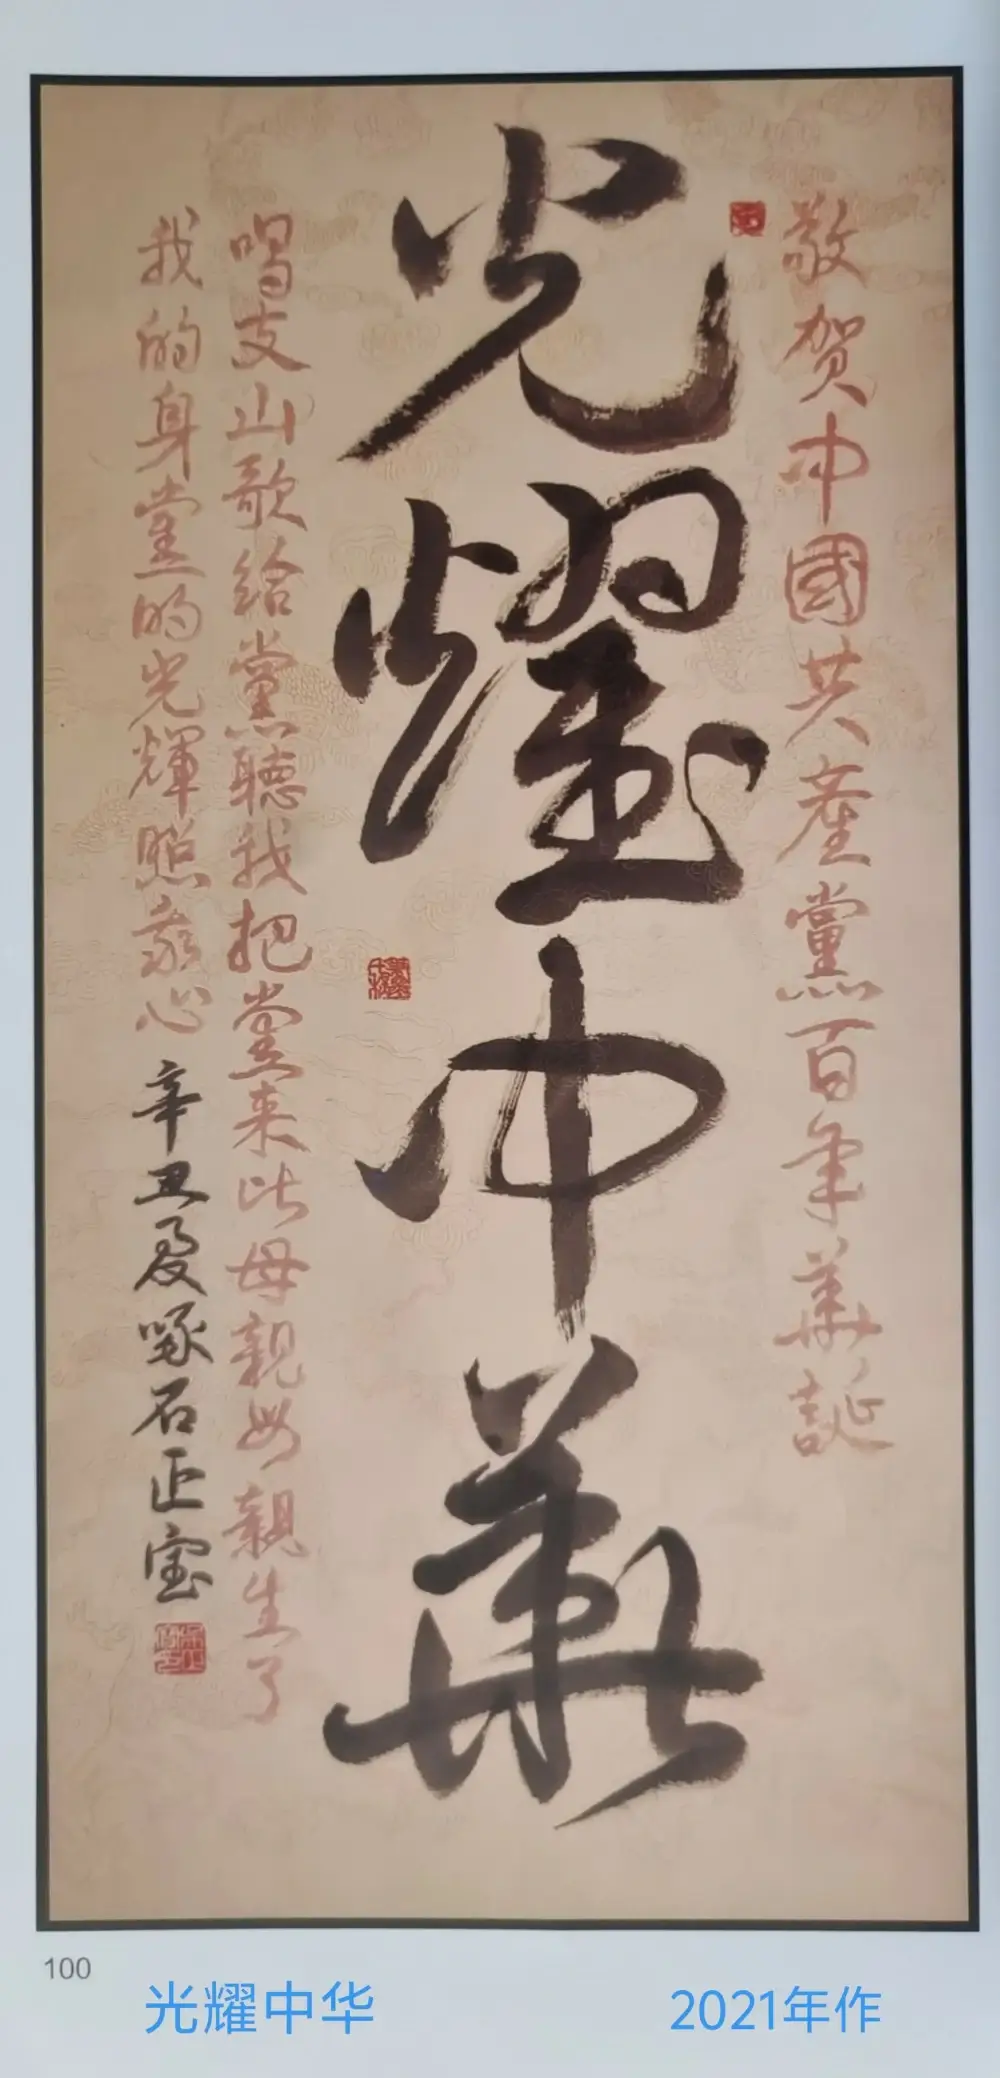 敬贺中國共產黨百年華誕
光耀中華
唱支山歌给黨聽我把堂来比母親母親生了
我的身堂的光輝照我心 辛丑夏啄石正宝
100
光耀中华
2021年作